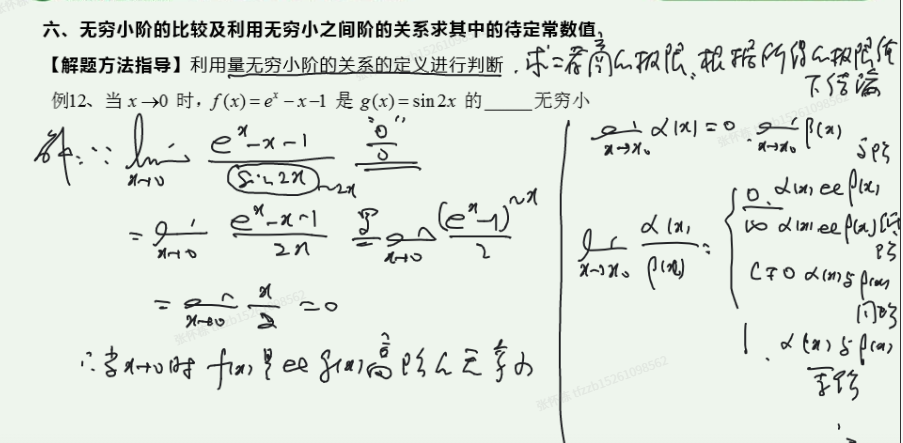 六、无穷小阶的比较及利用无穷小之间阶的关系求其中的待定常数值
【解题方法指导】利用量无穷小阶的关系的定义进行判断．求二者商的极限，根据所得的极限值
下结论
例12、当 x→0 时，f(x)=e^x−x−1 是 g(x)=sin2x 的_____无穷小
解：∵ lim_{x→0} (e^x−x−1)/(sin2x) ~2x "0/0"
= lim_{x→0} (e^x−x−1)/(2x) = lim_{x→0} (e^x−1)~x/2
= lim_{x→0} x/2 = 0
∴当x→0时 f(x)是比g(x)高阶的无穷小
lim_{x→x₀} α(x)=0 . lim_{x→x₀} β(x)
lim_{x→x₀} α(x)/β(x) =
0. α(x)比β(x)
∞ α(x)比β(x)低阶
C≠0 α(x)与β(x)
同阶
1. α(x)与β(x)
等阶